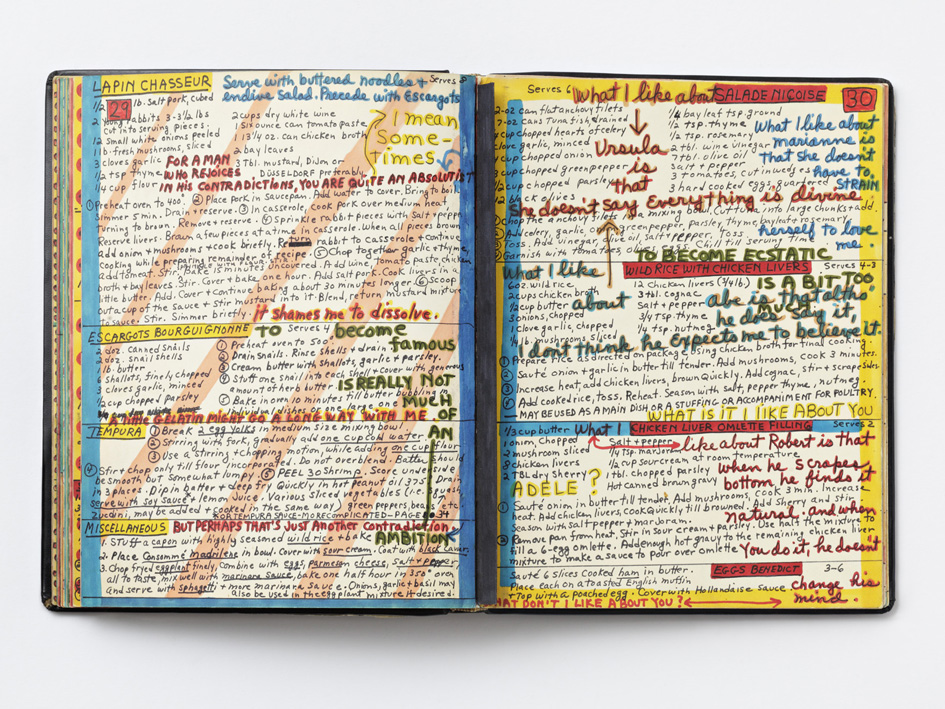 LAPIN CHASSEUR
Serve with buttered noodles +
endive salad. Precede with Escargots
29
1/2 lb. Salt pork, cubed
rabbits 3-3 1/2 lbs
cut into serving pieces
12 small white onions peeled
1 lb. fresh mushrooms, sliced
3 cloves garlic
tsp thyme
1/4 cup flour
2 cups dry white wine
1 six ounce can tomato paste
1 3 3/4 oz. can chicken broth
2 bay leaves
3 Tbl. mustard, Dijon or
DÜSSELDORF preferably
I mean
Some-
times.
FOR A MAN
WHO REJOICES
IN HIS CONTRADICTIONS, YOU ARE QUITE AN ABSOLUTIST
① Preheat oven to 400. ② Place pork in saucepan. Add water to cover. Bring to boil.
Simmer 5 min. Drain + reserve. ③ In casserole, cook pork over medium heat
Remove + reserve. ④ Sprinkle rabbit pieces with Salt + pepper
Brown a few pieces at a time. When all pieces brown
onion + mushrooms + cook briefly. Return rabbit to casserole + continue
cooking while preparing remainder of recipe. ⑤ Chop together garlic + thyme.
Add wine, tomato paste, chicken
broth + bay leaves. Stir. Cover + bake one hour. Add Salt pork. Cook livers in a
little butter. Add. Cover + Continue baking about 30 minutes longer. ⑥ Scoop
out a cup of the sauce + Stir mustard into it. Blend, return mustard mixture
to sauce. Stir. Simmer briefly.
It shames me to dissolve.
ESCARGOTS BOURGUIGNONNE
Serves 4
TO become
famous
IS REALLY NOT
MUCH OF
AN
AMBITION
2 doz. canned Snails
2 doz. snail shells
1 lb. butter
6 shallots, finely chopped
3 cloves garlic, minced
1/2 cup chopped parsley
① Preheat oven to 500
② Drain snails. Rinse shells + drain.
③ Cream butter with shallots, garlic + parsley.
④ Stuff one snail into each shell + cover with generous
amount of herb butter
⑤ Bake in oven 10 minutes till butter bubbling
A LITTLE GELATIN MIGHT GO A LONG WAY WITH ME
TEMPURA
① Break 2 egg yolks in medium size mixing bowl.
② Stirring with fork, gradually add one cup cold water
③ Use a stirring + chopping motion, while adding one cup flour
④ Stir + chop only till flour incorporated. Do not overblend. Batter should
be smooth but somewhat lumpy. ⑤ PEEL 30 Shrimp. Score underside
in 3 places. Dip in batter + deep fry quickly in hot peanut oil 375°. Drain
serve with soy sauce + lemon juice. Various sliced vegetables (i.e. squash
may be added + cooked in the same way) green peppers, beans etc.
FOR TEMPURA SAUCE - MORE COMPLICATED - PAGE
MISCELLANEOUS
BUT PERHAPS THAT'S JUST ANOTHER Contradiction
1. Stuff a capon with highly seasoned wild rice + bake
2. Place Consommé madrilene in bowl. Cover with sour cream. Coat with black caviar
3. Chop fried eggplant finely. Combine with eggs, parmesan cheese, salt + pepper,
all to taste. mix well with marinara sauce, bake one half hour in 350° oven
and serve with spaghetti + more marinara sauce. Onions, garlic + basil may
also be used in the eggplant mixture if desired.
Serves 6
What I like about
SALADE NIÇOISE
30
2-oz can flat anchovy filets
7-oz cans Tuna fish drained
cup chopped hearts of celery
clove garlic, minced
cup chopped onion
cup chopped green pepper
cup chopped parsley
black olives
1/4 bay leaf tsp ground
1/2 tsp. thyme
1/2 tsp. rosemary
2 tbl. wine vinegar
7 tbl. olive oil
Salt + pepper
3 tomatoes, cut in wedges
3 hard cooked eggs, quartered
Ursula
is
that
she doesn't say Everything is divine
What I like about
marianne is
that she doesn't
have to
STRAIN
herself to love
me.
① Chop the anchovy filets in a mixing bowl. Cut tuna into large chunks + add.
② Add celery, garlic, onion, green pepper, parsley, thyme, bay leaf + rosemary.
③ Toss. Add vinegar, olive oil, salt + pepper. Toss
Chill till serving time
④ Garnish with tomatoes
TO BECOME ECSTATIC
IS A BIT TOO
MUCH
What I like
about
WILD RICE WITH CHICKEN LIVERS
Serves 4-3
abe is that altho
he does say it,
I don't think he expects me to believe it.
6 oz. wild rice
2 cups chicken broth
1/2 cup butter
3 onions, chopped
1 clove garlic, chopped
1/4 lb. mushrooms sliced
12 Chicken livers (3/4 lb.)
3 tbl. cognac
3/4 tsp. thyme
1/4 tsp. nutmeg
① Prepare rice as directed on package using chicken broth for final cooking
② Sauté onion + garlic in butter till tender. Add mushrooms, cook 3 minutes.
③ Increase heat, add chicken livers, brown quickly. Add cognac, stir + scrape sides
④ Add cooked rice, toss. Reheat. Season with salt, pepper, thyme, nutmeg.
⑤ MAY BE USED AS A MAIN DISH OR A STUFFING OR ACCOMPANIMENT FOR POULTRY.
WHAT IS IT I LIKE ABOUT YOU
ADELE?
1/3 cup butter
What I
CHICKEN LIVER OMLETTE FILLING
Serves 2
like about Robert is that
when he scrapes
bottom he finds it
natural, and when
You do it, he doesn't
change his
mind.
1 onion, chopped
2 mushroom sliced
8 chicken livers
2 TBL dry Sherry
Salt + pepper
1/4 tsp. marjoram
1/2 cup sour cream at room temperature
1 tbl. chopped parsley
Hot canned brown gravy
① Sauté onion in butter till tender. Add mushrooms, cook 3 min. Increase
heat. Add chicken livers, cook quickly till browned. Add Sherry and stir
season with Salt + pepper + marjoram.
② Remove pan from heat. Stir in sour cream + parsley. Use half the mixture to
fill a 6-egg omlette. Add enough hot gravy to the remaining chicken liver
mixture to make a sauce to pour over omlette
EGGS BENEDICT
3-6
Sauté 6 slices Cooked ham in butter.
Place each on a toasted English muffin
+ Top with a poached egg. Cover with Hollandaise Sauce.
WHAT DON'T I LIKE ABOUT YOU?